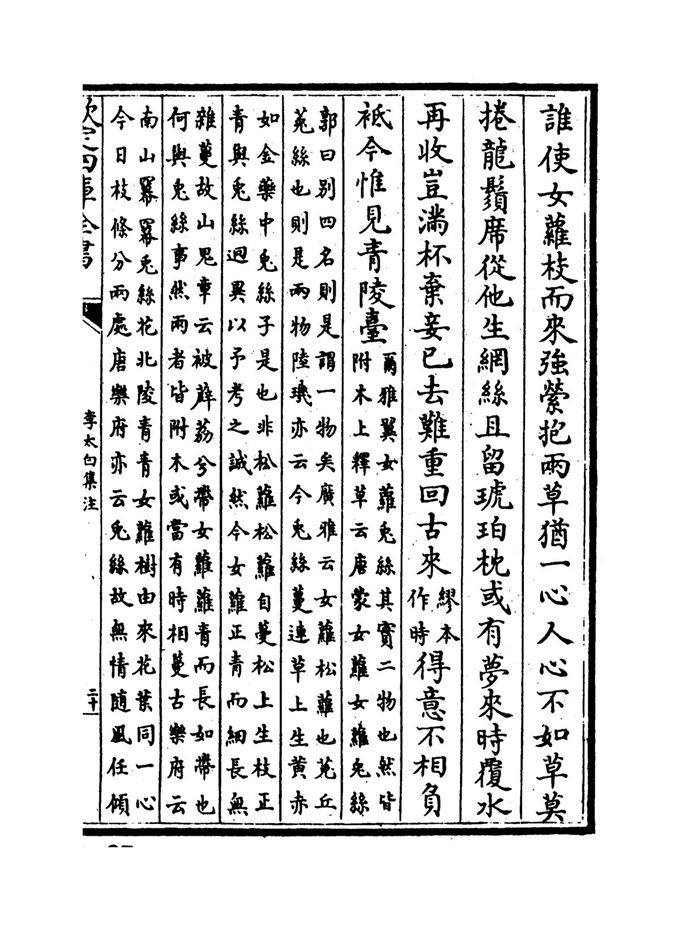 誰使女蘿枝而來強縈抱兩草猶一心人心不如草莫
捲龍鬚席從他生網絲且留琥珀枕或有夢來時覆水
再收豈滿杯棄妾已去難重回古來
繆本
作時
得意不相負
祗今惟見青陵臺
爾雅翼女蘿兎絲其實二物也然皆
附木上釋草云唐蒙女蘿女蘿兎絲
郭曰別四名則是謂一物矣廣雅云女蘿松蘿也菟丘
菟絲也則是兩物陸璣亦云今兎絲蔓連草上生黄赤
如金藥中兎絲子是也非松蘿松蘿自蔓松上生枝正
青與兎絲迥異以予考之誠然今女蘿正青而細長無
雜蔓故山鬼章云被薜荔兮帶女蘿蘿青而長如帶也
何與兎絲事然兩者皆附木或當有時相蔓古樂府云
南山羃羃兎絲花北陵青青女蘿樹由來花葉同一心
今日枝條分兩處唐樂府亦云兎絲故無情隨風任傾
欽定四庫全書
李太白集注
二十